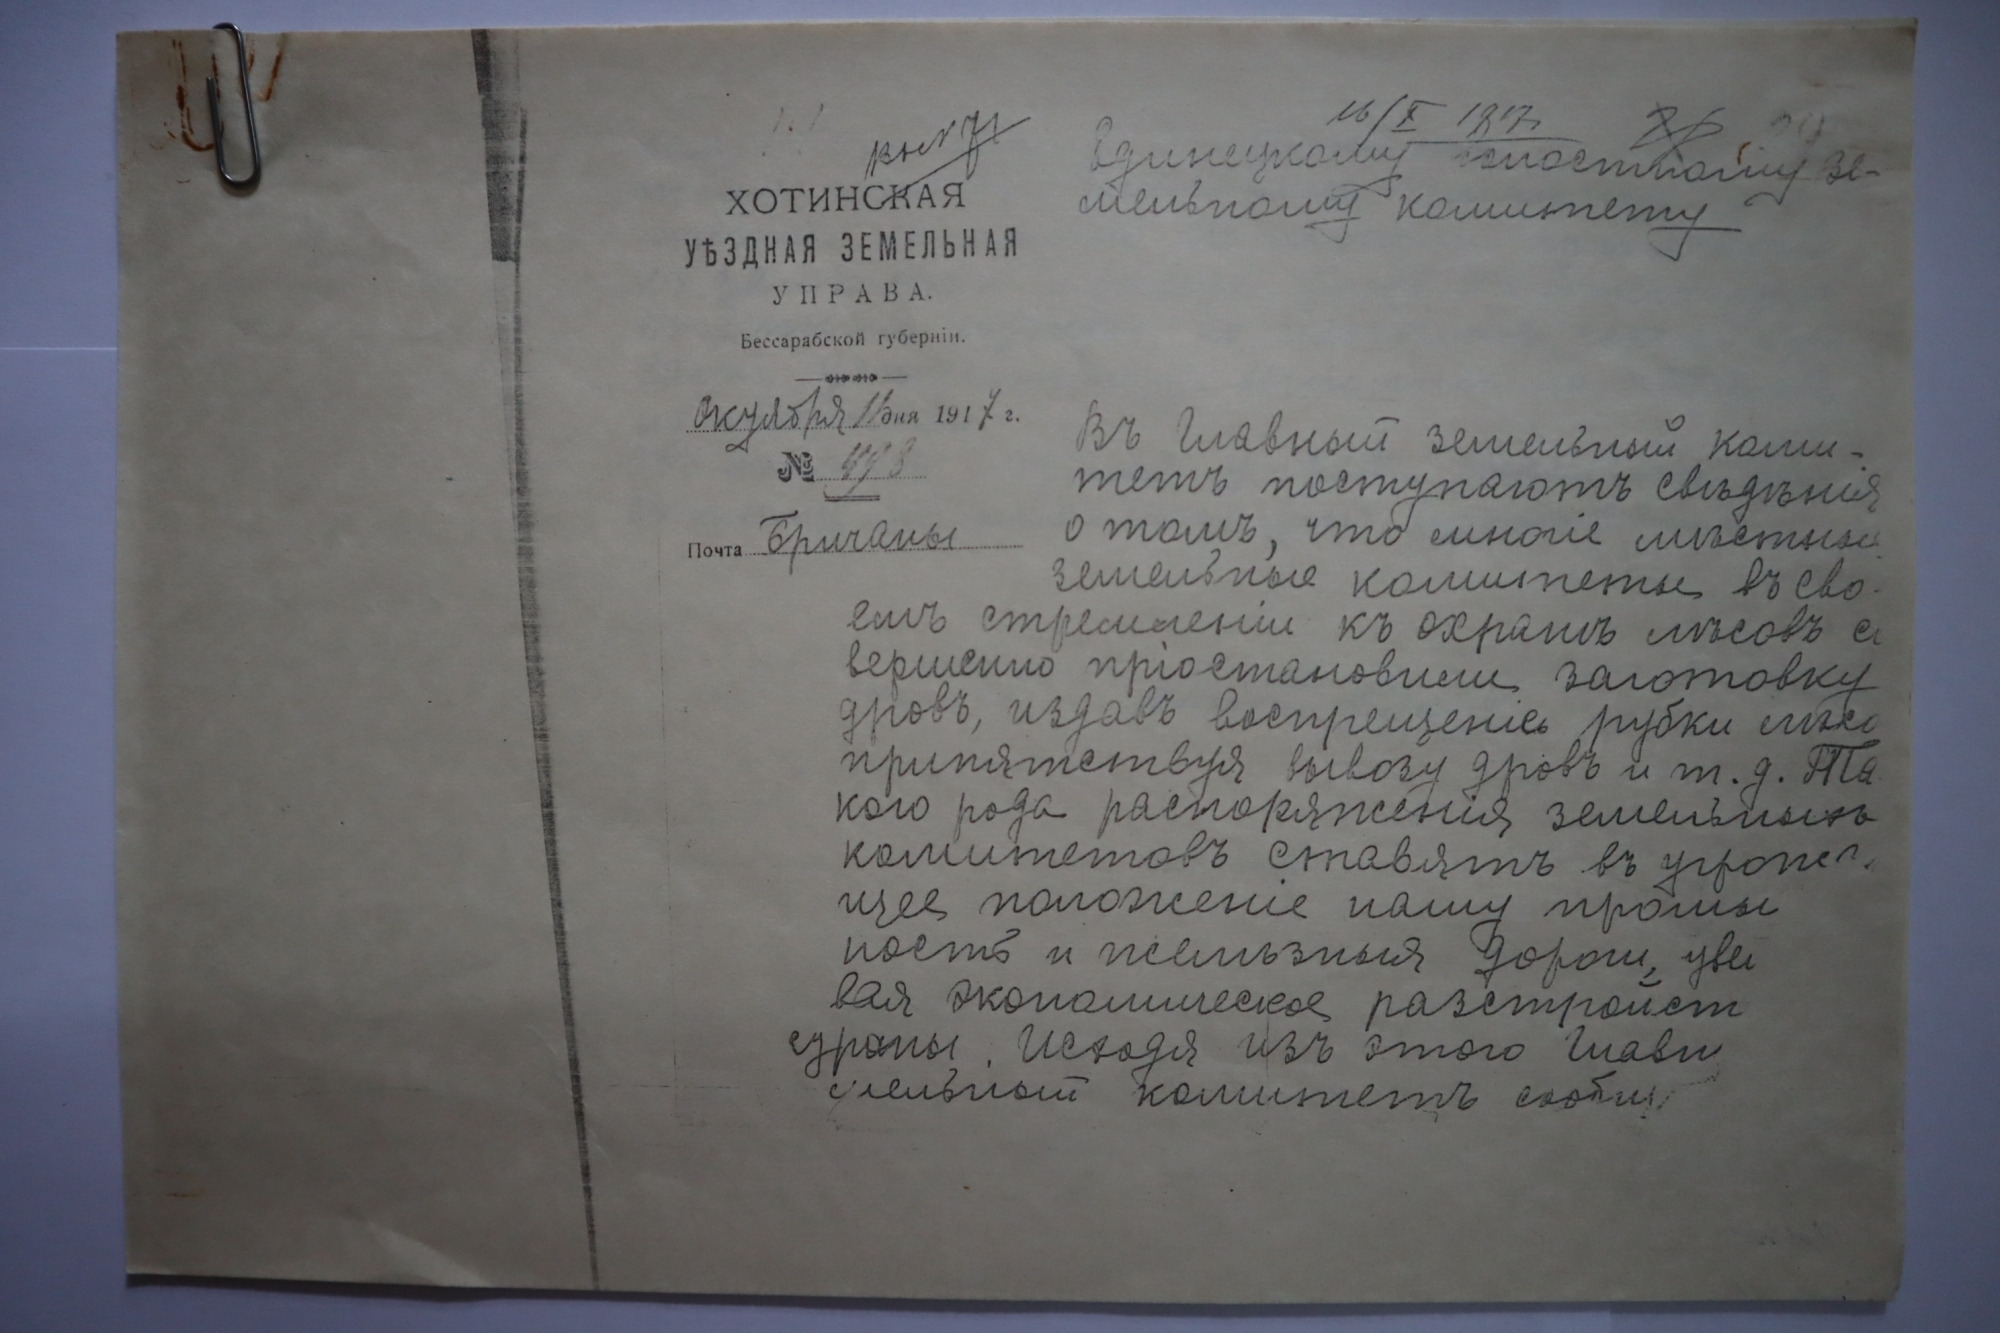 16/X 1917
вх № 71
Единецкому волостному зе-
мельному комитету
ХОТИНСКАЯ
УѢЗДНАЯ ЗЕМЕЛЬНАЯ
УПРАВА.
Бессарабской губернiи.
Октября 11 дня 1917 г.
№ 498
Почта Бричаны
Въ Главный земельный коми-
тетъ поступаютъ свѣдѣнiя
о томъ, что многiе мѣстные
земельные комитеты въ сво-
емъ стремленiи къ охранѣ лѣсовъ со
вершенно прiостановили заготовку
дровъ, издавъ воспрещенiе рубки лѣса
припятствуя вывозу дровъ и т. д. Та
кого рода распоряженiя земельныхъ
комитетовъ ставятъ въ угрожаю
щее положенiе нашу промы
ность и желѣзныя дороги, уве
вая экономическое разстройст
страны. Исходя изъ этого Главн
мельный комитетъ сообщ